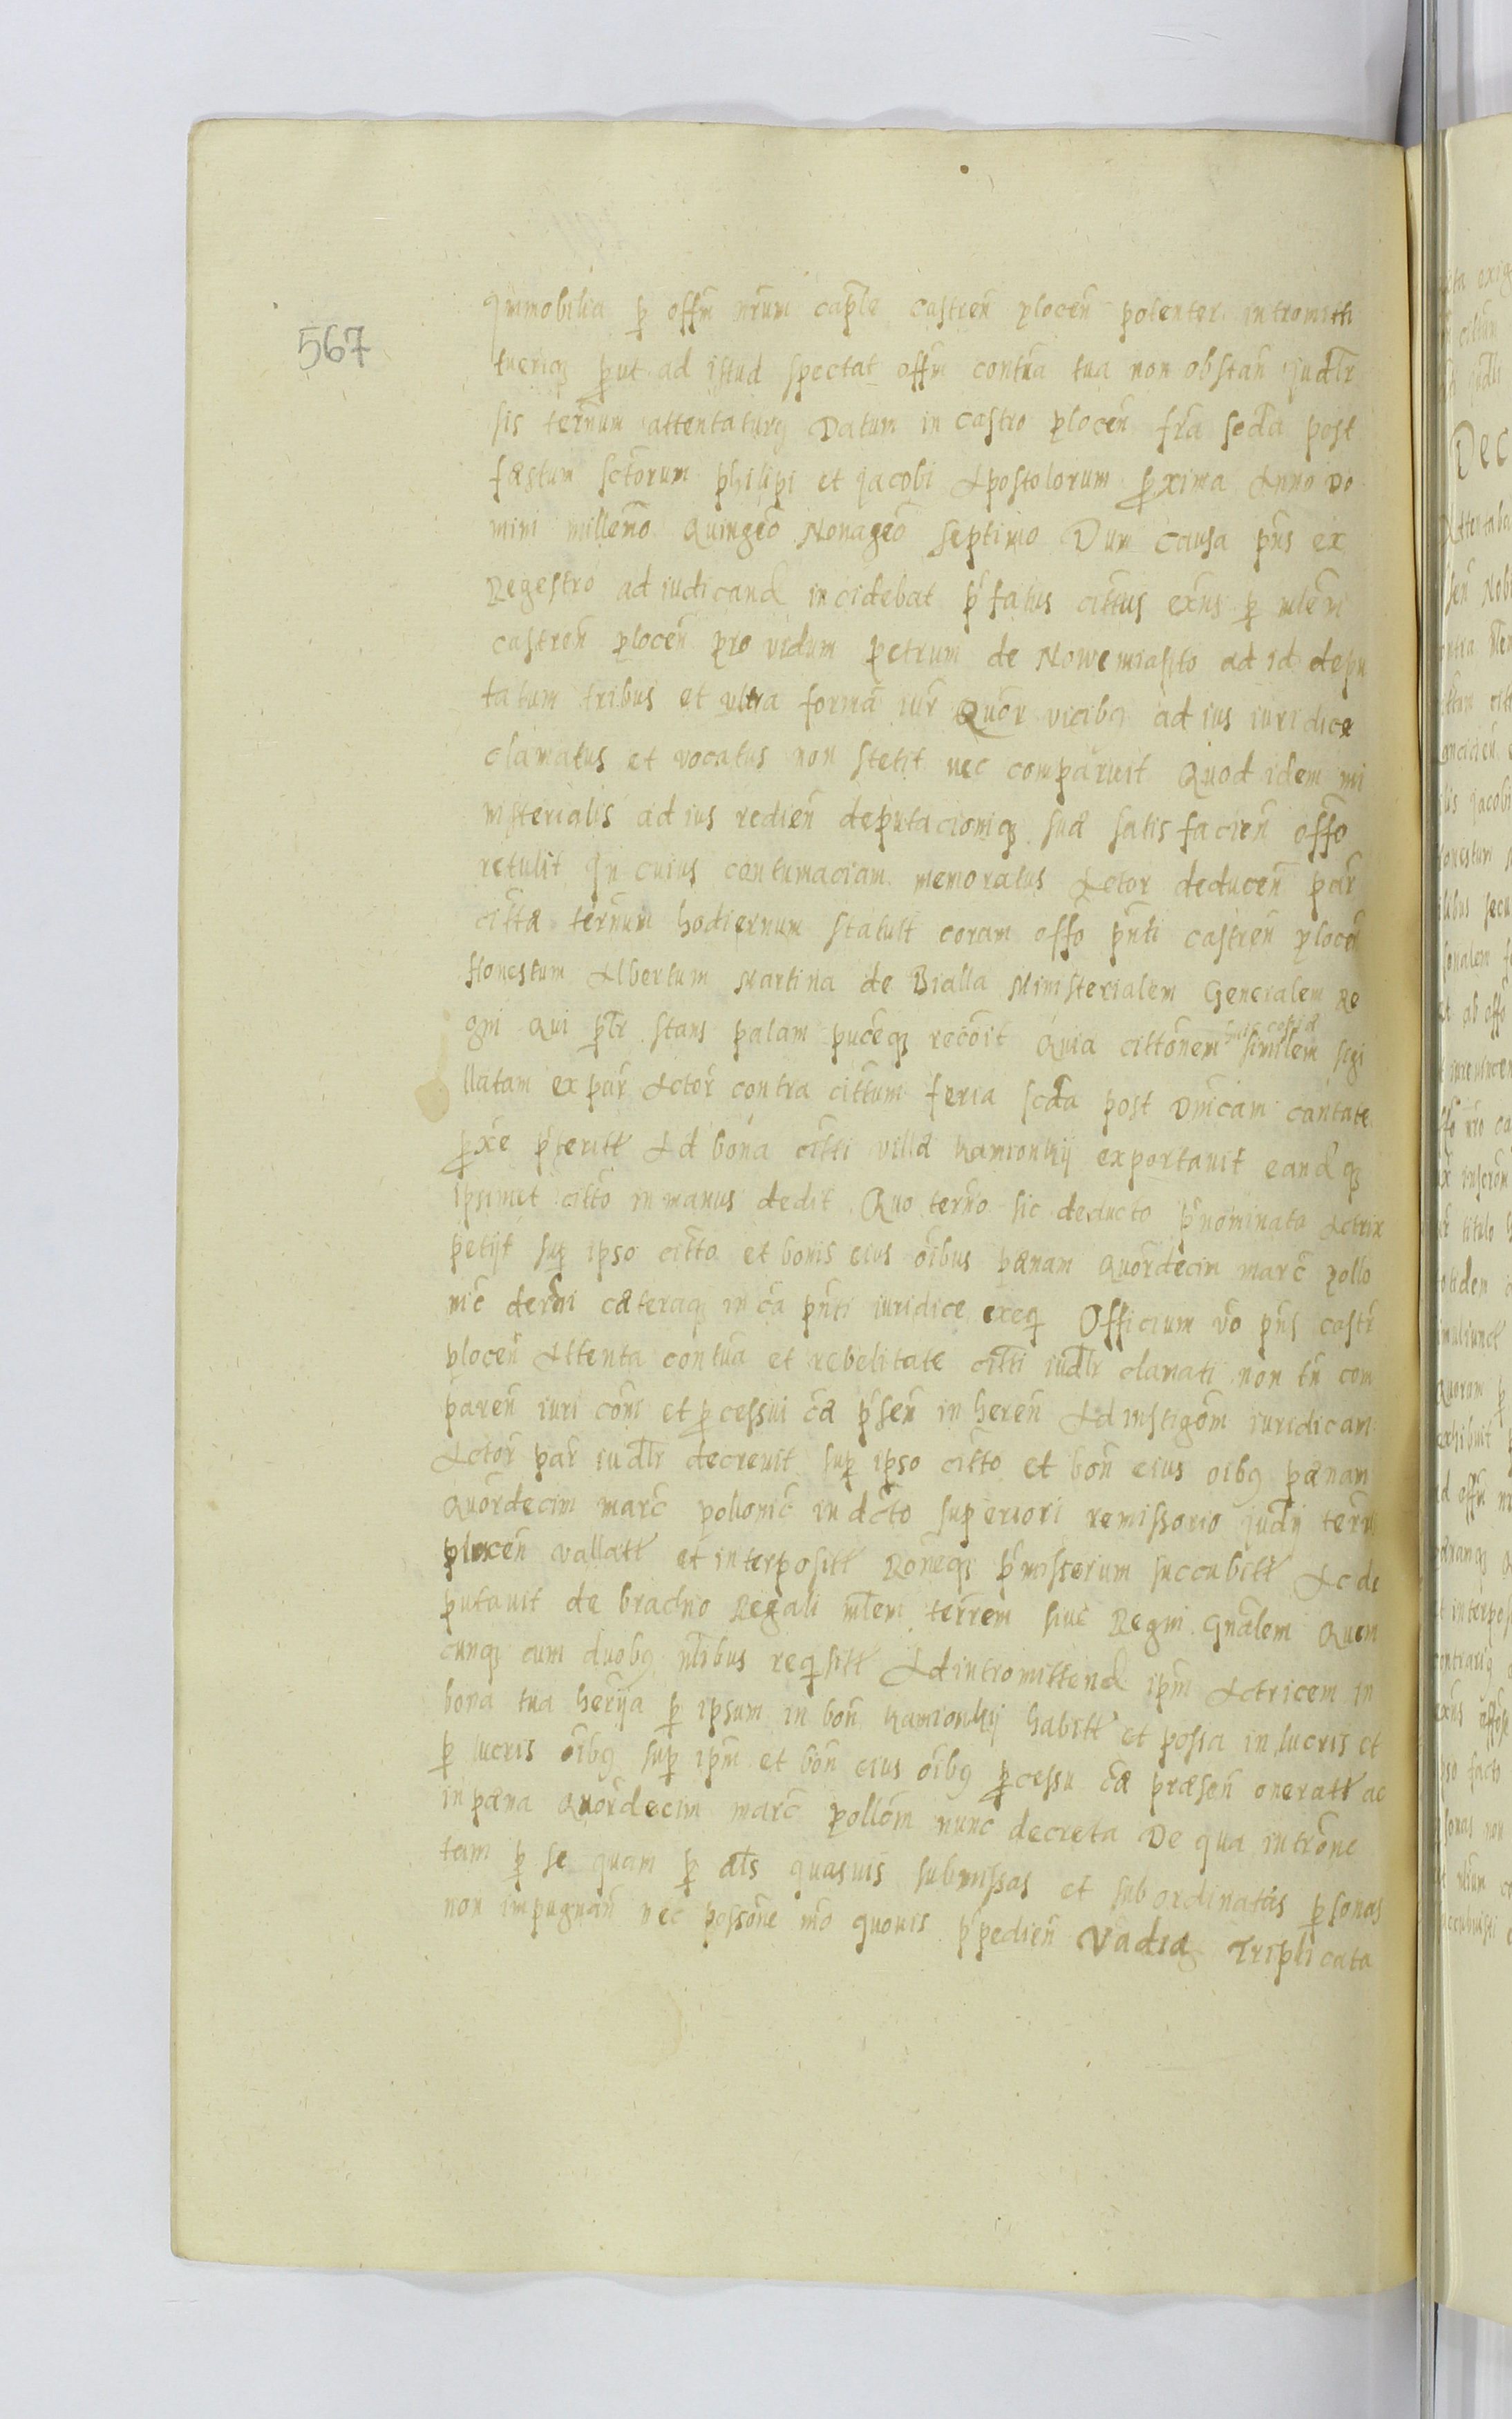 567
Immobilia p offm nrum caple castren plocen potenter intromitti
tueriq put ad istud spectat offm contua tua non obstan judlr
sis termnum attentaturq Datum in castro plocen fria scda post
fæstum sctorum philipi et jacobi Apostolorum pxima Anno Do
mini milleno Quingeo Nonageo septimo Dum causa pns ex
Regestro ad iudicand incidebat pfatus cittus exns p mlem
castren plocen pro vidum petrum de Nowemiasto ad id depu
tatum tribus et ultra forma iur Quor vicibq ad ius iuridice
clamatus et vocatus non stetit nec comparuit Quod idem mi
nisterialis ad ius redien deputacioniq suæ satis facien offo
retulit In cuius contumaciam memoratus Actor deducen par
cittæ termnum hodiernum statuit coram offo pnti castren plocen
Honestum Albertum Martina de Bialla Ministerialem Generalem Re
gni Qui plr stans palam puceq recoit Quia cittonem similem sigi
llatam ex par Actor contra cittum feria scda post Dnicam cantate
pxe pteritt Ad bona citti villæ Kamionkij exportauit eandq
ipsimet citto in manus dedit Quo termno sic deducto pnominata Actrix
petijt sup ipso citto et bonis eius oibus pænam Quordecim marc pollo
nic decerni cæteraq in ca pnti iuridice exeq Officium vo pns castr
plocen Attenta contua et rebelitate citti iudlr clamati non tn com
paren iuri comi et pcessui cæ psen in heren Ad instigom iuridicam
Actor par iudlr decreuit sup ipso citto et bon eius oibq pænam
Quordecim marc pollonic in dcto superiori remissorio judij terrs
plocen vallatt et interpositt Roneq pmissorum succubitt Ac de
putauit de bradno Regali mlem terrem siue Regni Gnalem Quem
cunq cum duobq nlibus reqsitt Ad intromittend ipm Actricem in
bona tua herija p ipsum in bon Kamionkij habitt et possa in lucris et
p lucris oibq sup ipm et bon eius oibq pcessu cæ præsen oneratt ac
in pæna Quordecim marc pollom nunc decreta De qua introne
tam p se quam p als quasuis submissas et subordinatas psonas
non impugnan nec possone mo quouis ppedien Vadia Triplicata